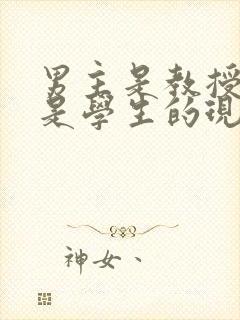 男主是教授
是學生的現
神女、